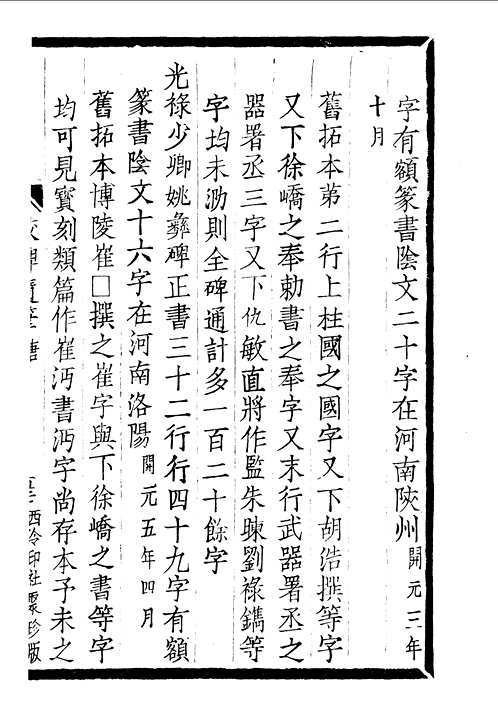 字有額篆書陰文二十字在河南陝州開元三年
十月
舊拓本第二行上柱國之國字又下胡浩撰等字
又下徐嶠之奉勅書之奉字又末行武器署丞之
器署丞三字又下仇敏直將作監朱曔劉祿鐫等
字均未泐則全碑通計多一百二十餘字
光祿少卿姚彝碑正書三十二行行四十九字有額
篆書陰文十六字在河南洛陽開元五年四月
舊拓本博陵崔□撰之崔字與下徐嶠之書等字
均可見寳刻類篇作崔沔書沔字尚存本予未之
校碑隨筆 唐
西泠印社聚珍版